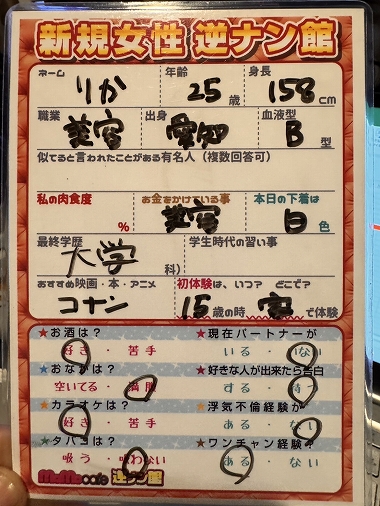 新規女性 逆ナン館
ネーム 年齢 身長
りか 25歳 158cm
職業 出身 血液型
美容 愛知 B型
似てると言われたことがある有名人（複数回答可）
私の肉食度 お金をかけている事 本日の下着は
% 美容 白色
最終学歴 学生時代の習い事
大学 科）
おすすめ映画・本・アニメ 初体験は、いつ？ どこで？
コナン 15歳の時 家で体験
★お酒は？ ★現在パートナーが
好き・苦手 いる・いない
★おなかは？ ★好きな人が出来たら告白
空いてる・満腹 する・待つ
★カラオケは？ ★浮気不倫経験が
好き・苦手 ある・ない
★タバコは？ ★ワンチャン経験？
吸う・吸わない ある・ない
cafe 逆ナン館